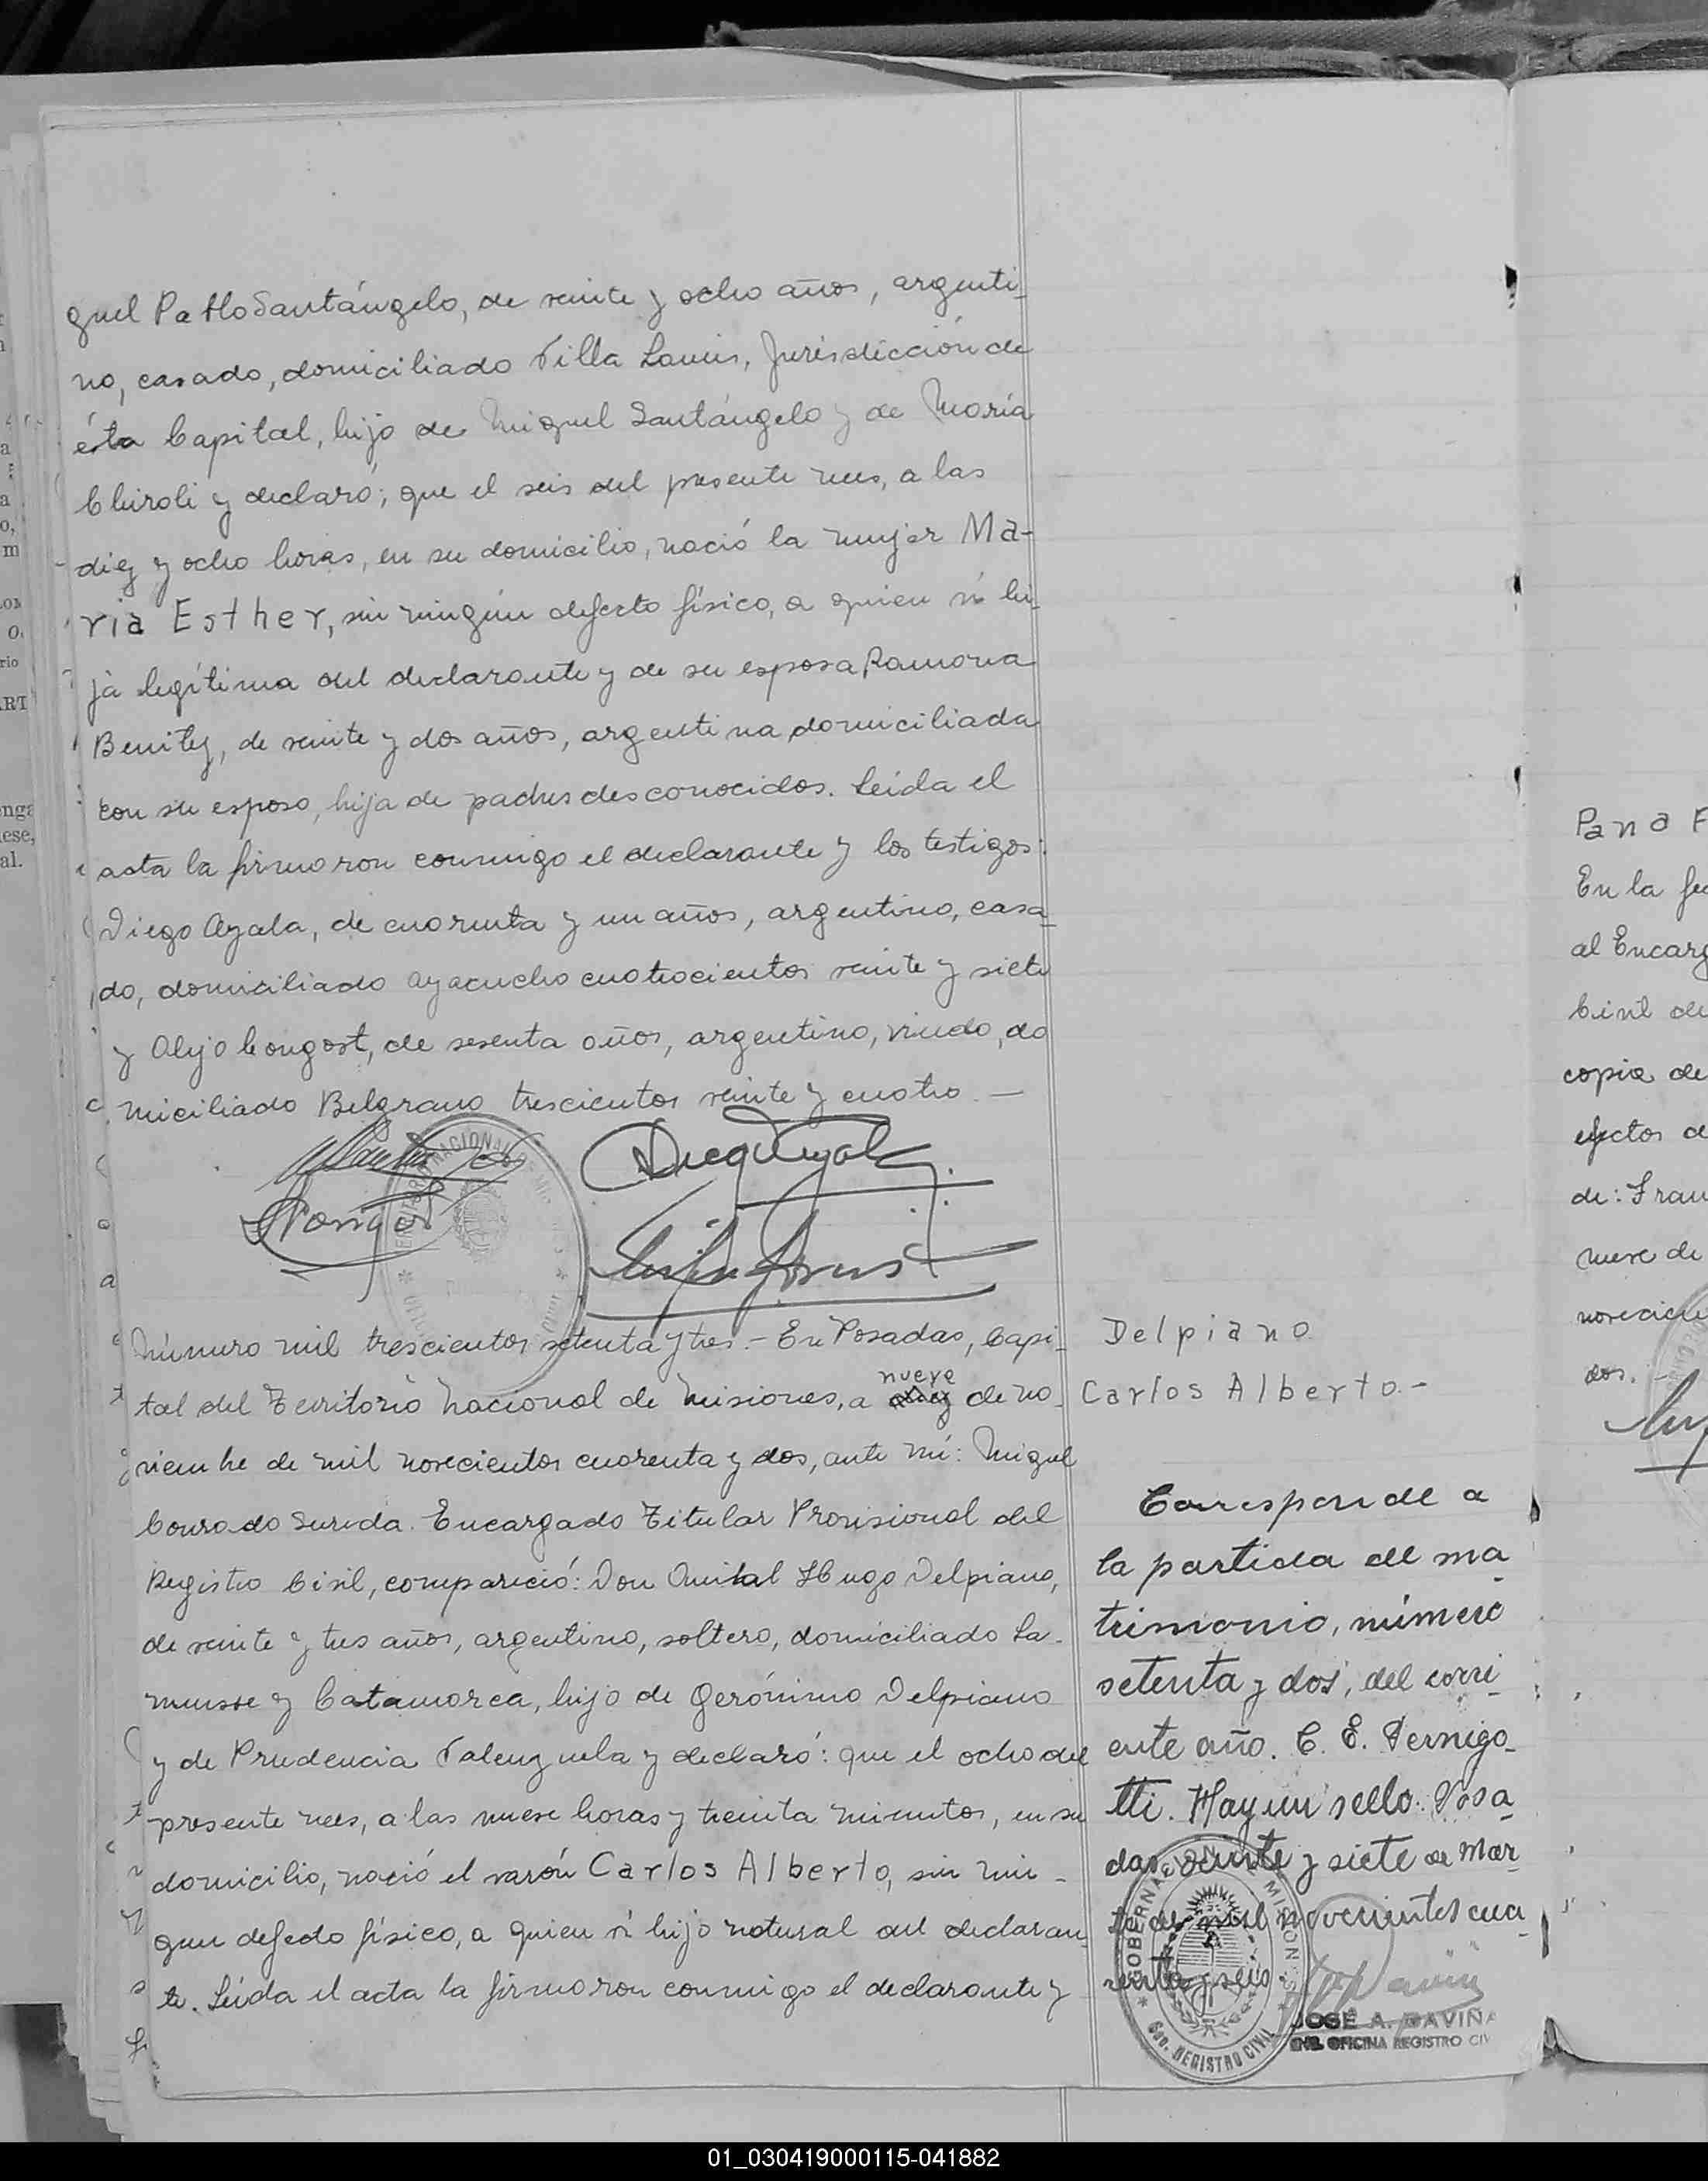 guel Pablo Santángelo, de veinte y ocho años, argenti-
no, casado, domiciliado Villa Lanús, Jurisdicción de
ésta Capital, hijo de Miguel Santángelo y de María
Chiroli y declaró; que el seis del presente mes, a las
diez y ocho horas, en su domicilio, nació la mujer Ma-
ria Esther, sin ningún defecto físico, a quien vi hi-
ja legítima del declarante y de su esposa Ramona
Benitez, de veinte y dos años, argentina domiciliada
con su esposo, hija de padres desconocidos. Leída el
acta la firmaron conmigo el declarante y los testigos:
Diego Ayala, de cuarenta y un años, argentino, casa-
do, domiciliado Ayacucho cuatrocientos veinte y siete
y Alejo Congost, de sesenta años, argentino, viudo, do
miciliado Belgrano trescientos veinte y cuatro. —
Diego Ayala
Número mil trescientos setenta y tres. - En Posadas, Capi-
tal del Territorio Nacional de Misiones, a diez nueve de no-
viembre de mil novecientos cuarenta y dos, ante mí: Miguel
Conrado Sureda. Encargado Titular Provisional del
Registro Civil, compareció: Don Anibal Hugo Delpiano,
de veinte y tres años, argentino, soltero, domiciliado La-
musse y Catamarca, hijo de Gerónimo Delpiano
y de Prudencia Valenzuela y declaró: que el ocho del
presente mes, a las nueve horas y treinta minutos, en su
domicilio, nació el varón Carlos Alberto, sin nin-
gun defecto físico, a quien vi hijo natural del declaran-
te. Leída el acta la firmaron conmigo el declarante y
Delpiano
Carlos Alberto.-
Corresponde a
la partida de ma-
trimonio, número
setenta y dos, del corri-
ente año. C. E. Pernigo-
tti. Hay un sello. Posa-
das, veinte y siete de Mar-
zo de mil novecientos cua-
renta y seis
GOBERNACION MISIONES
Sec. REGISTRO CIVIL
JOSÉ A. DAVIÑA
ENC. OFICINA REGISTRO CIV
Pana F
En la fe
al Encarg
Civil de
copia de
efectos de
de: Fran
nueve de
novecien
dos. -
01_030419000115-041882